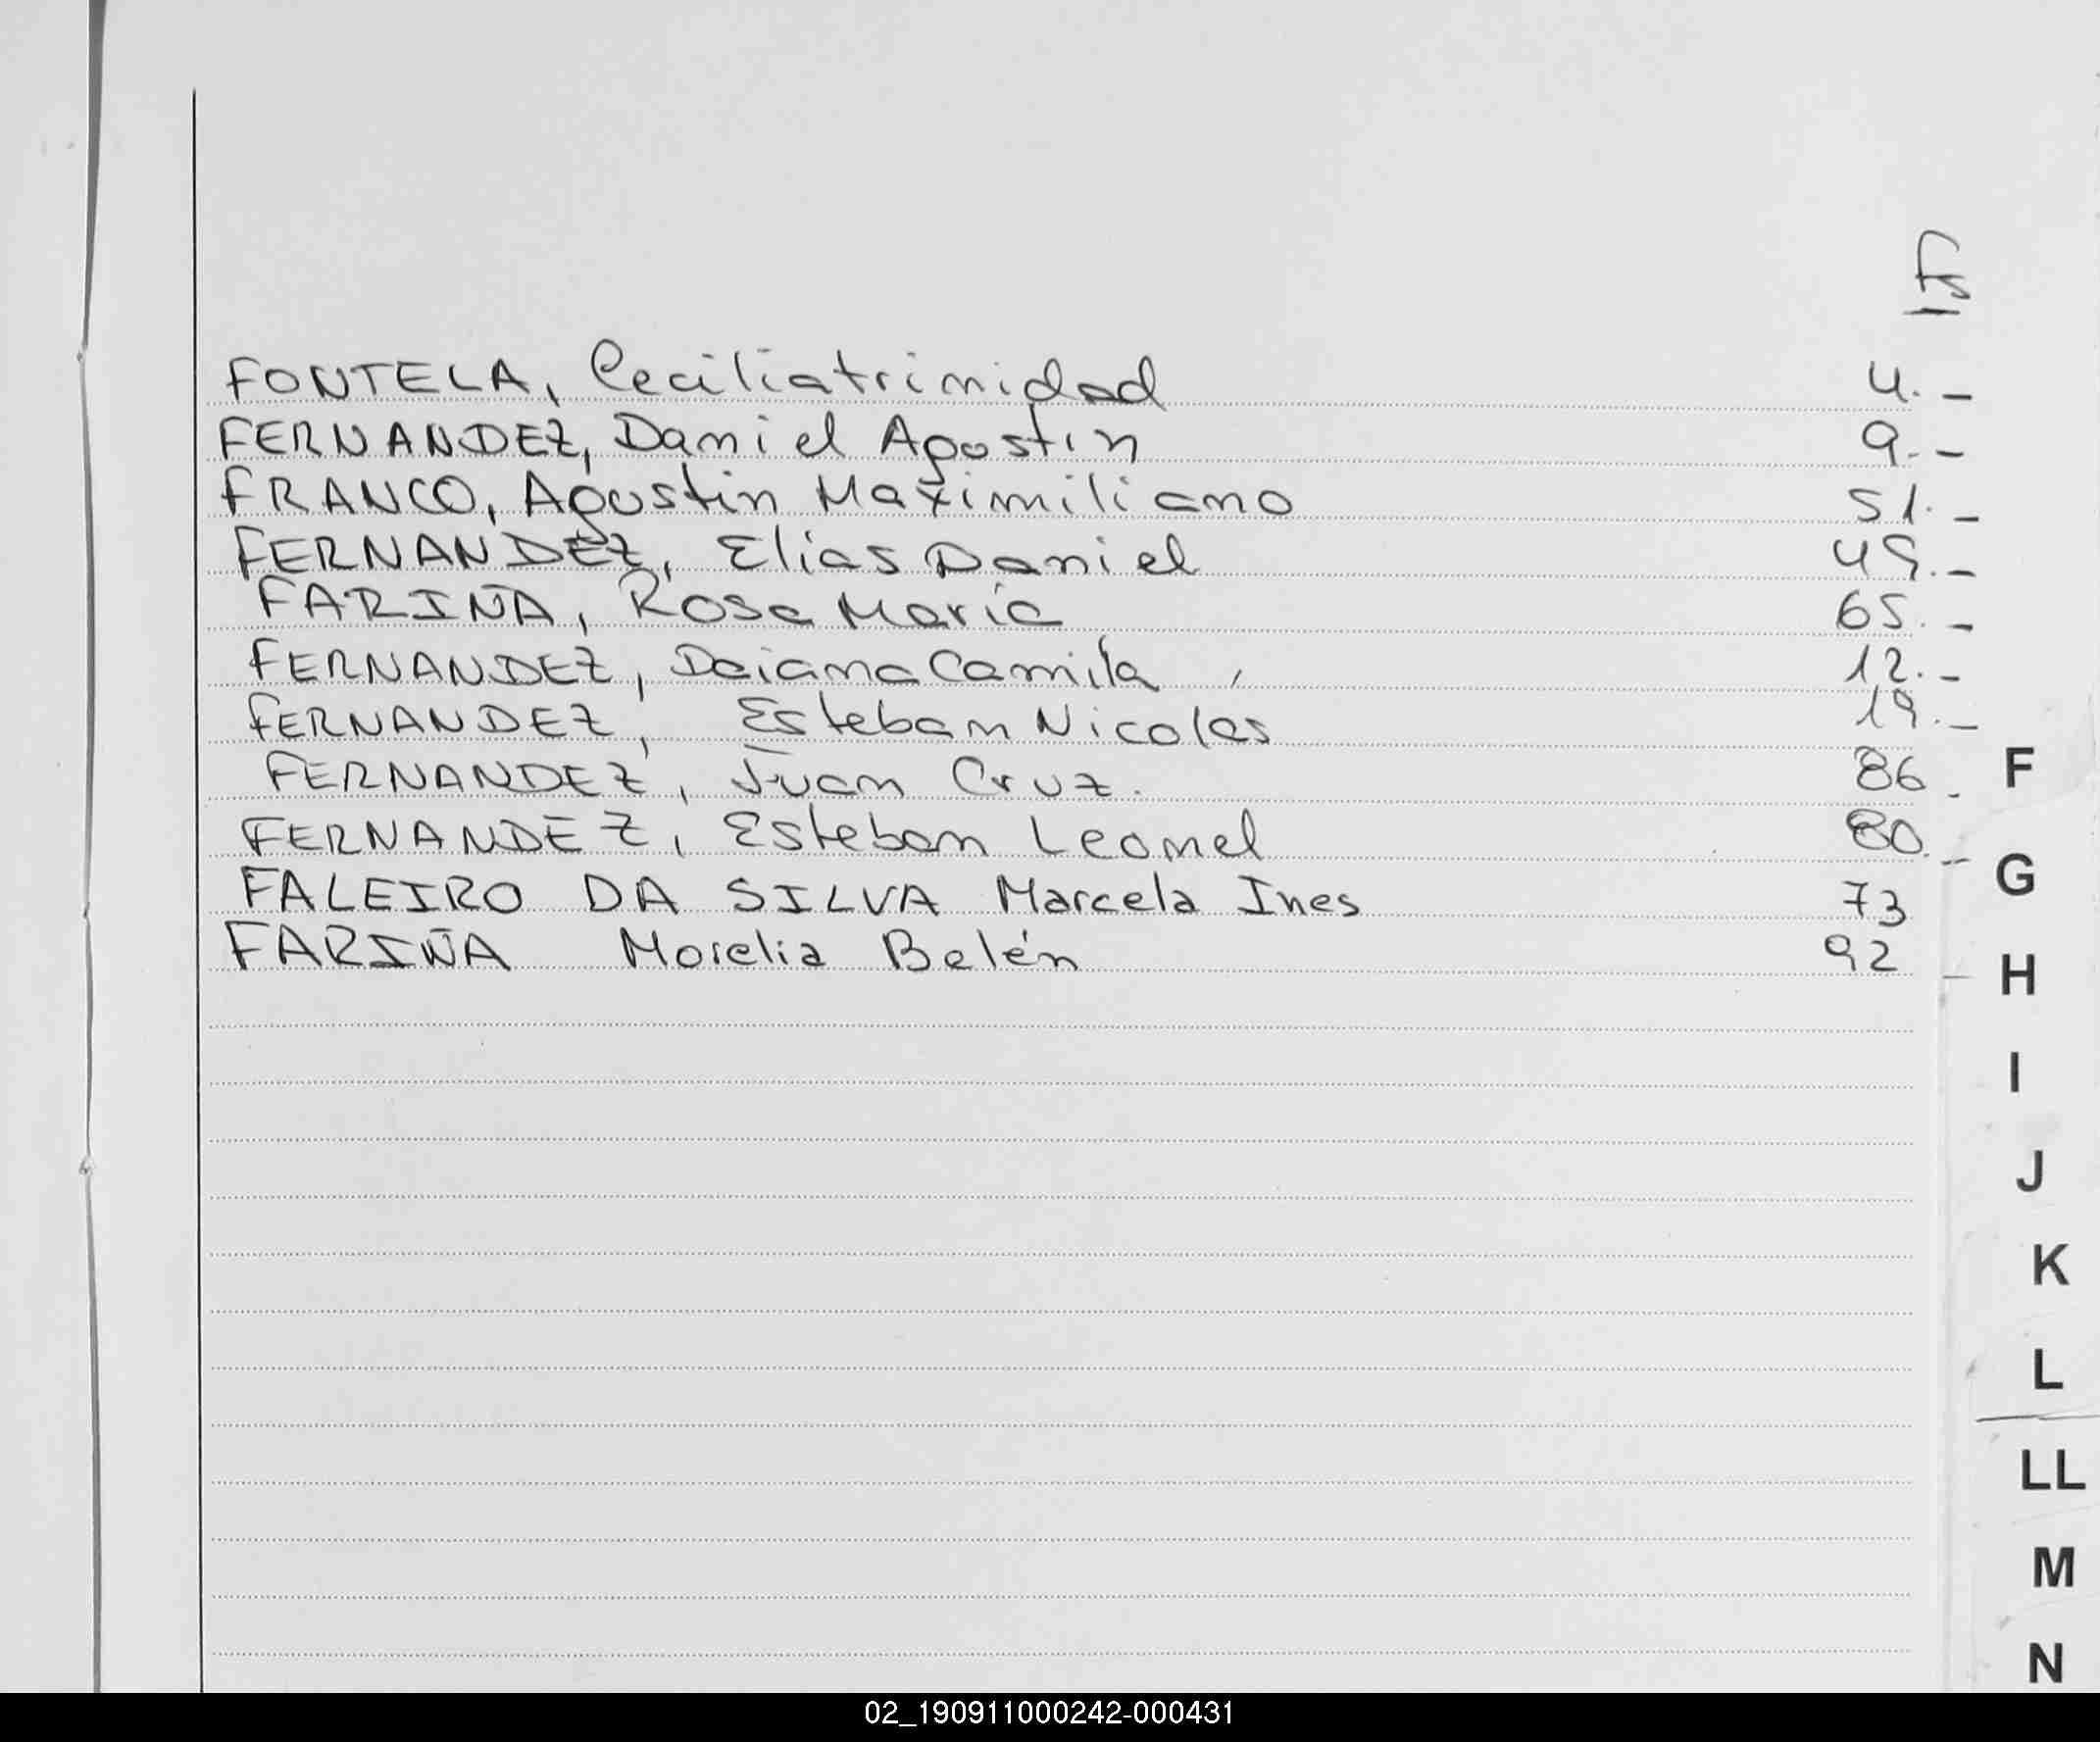 Fs
FONTELA, Ceciliatrinidad 4.-
FERNANDEZ, Daniel Agostin 9.-
FRANCO, Agustin Maximiliano 51.-
FERNANDEZ, Elias Daniel 49.-
FARIÑA, Rosa Maria 65.-
FERNANDEZ, Daiana Camila 12.-
FERNANDEZ, Esteban Nicolas 19.-
FERNANDEZ, Juan Cruz. 86.
FERNANDEZ, Esteban Leonel 80.-
FALEIRO DA SILVA Marcela Ines 73
FARIÑA Morelia Belén 92
F
G
H
I
J
K
L
LL
M
N
02_190911000242-000431